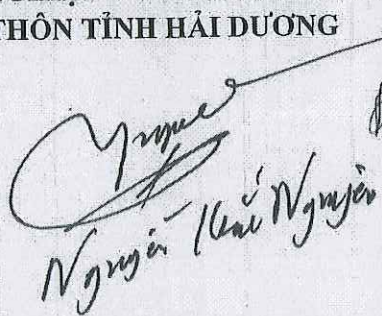 THÔN TỈNH HẢI DƯƠNG
Nguyễn Khắc Nguyện